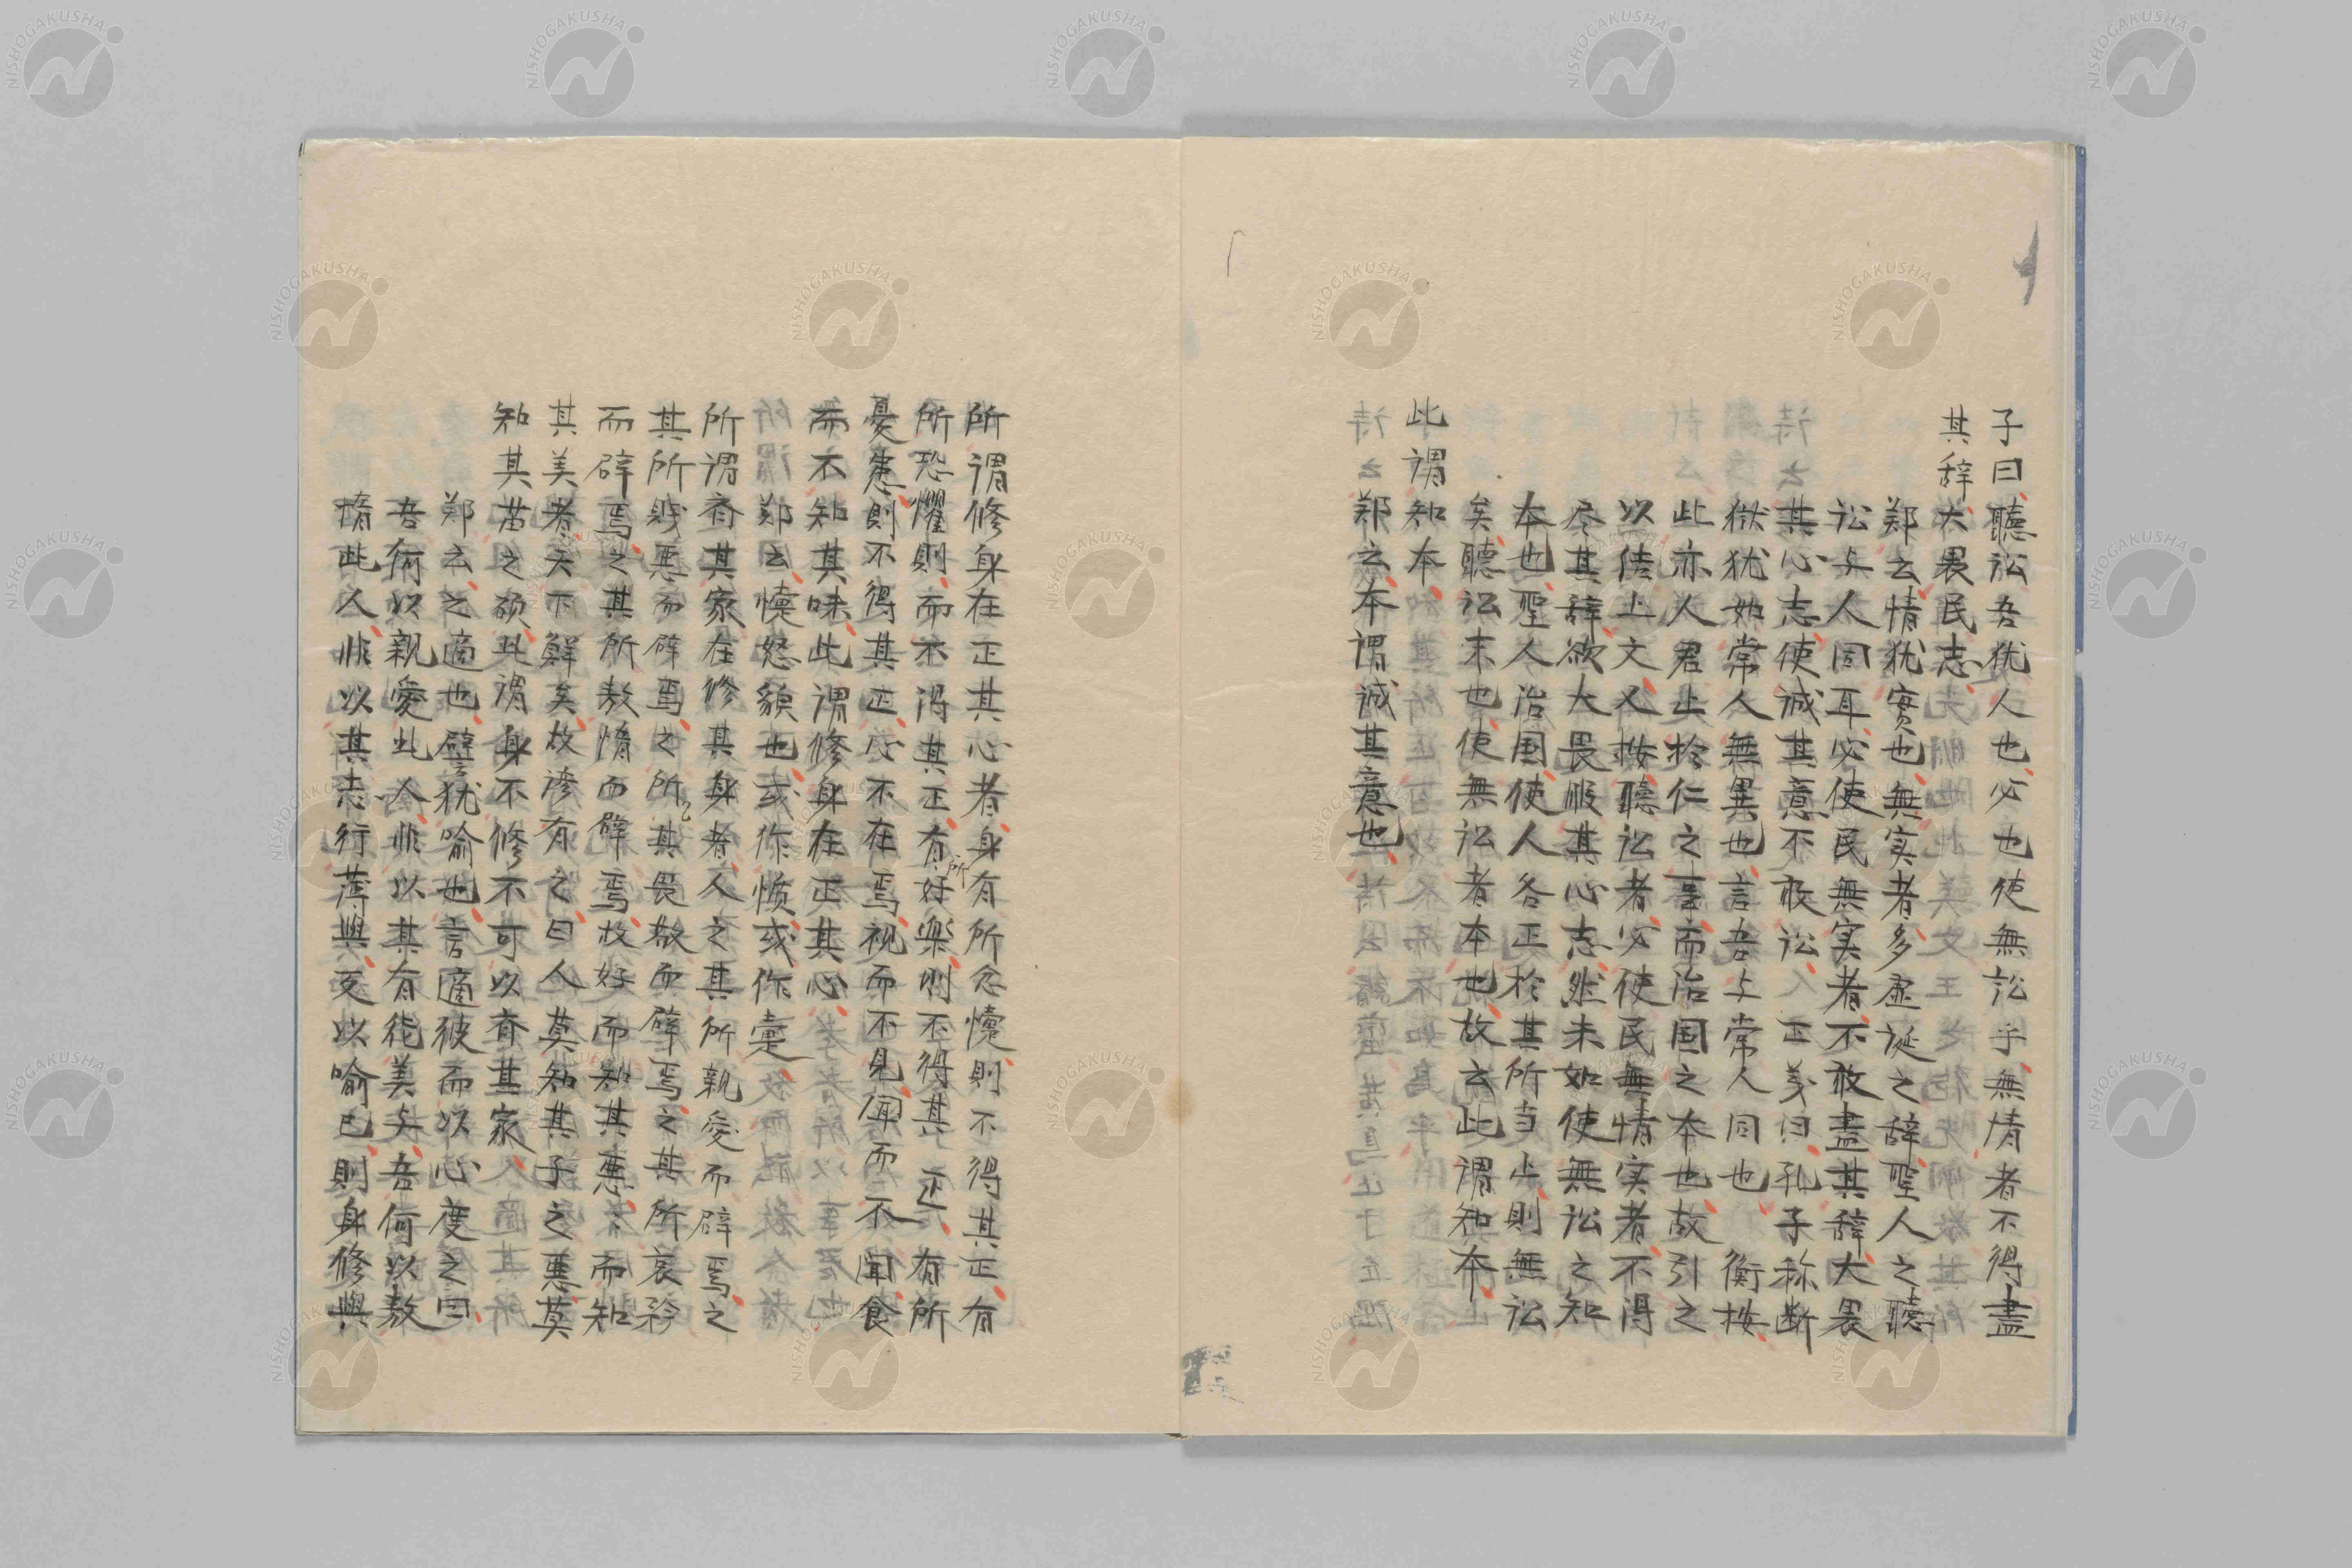 子曰聽訟吾犹人也必也使無訟乎無情者不得盡
其辞大畏民志
郑云情犹實也無实者多虚诞之辞聖人之聽
訟与人同耳必使民無実者不敢盡其辞大畏
其心志使诚其意不敢訟 正义曰孔子称断
獄犹如常人無異也言吾与常人同也 衡按
此亦人君止於仁之事而治国之本也故引之
以结上文又按聽訟者必使民無情实者不得
尽其辞欲大畏服其心志然未如使無訟之知
本也聖人治国使人各正於其所当止則無訟
矣聽訟末也使無訟者本也故云此謂知本
此謂知本
郑云本谓诚其意也
所謂修身在正其心者身有所忿懥則不得其正有
所恐懼則而不得其正有所好樂則不得其正有所
憂患則不得其正心不在焉視而不見闻而不聞食
而不知其味此謂修身在正其心
郑云懥怒貌也或作懫或作疐
所謂斉其家在修其身者人之其所親愛而辟焉之
其所賎悪而辟焉之所其畏敬而辟焉之其所哀矜
而辟焉之其所敖惰而辟焉故好而知其悪悪而知
其美者天下鮮矣故諺有之曰人莫知其子之悪莫
知其苗之硕此謂身不修不可以斉其家
郑云之適也譬犹喻也言適彼而以心度之曰
吾何以親愛此人非以其有徳美与吾何以敖
惰此人非以其志行薄與反以喻己則身修與